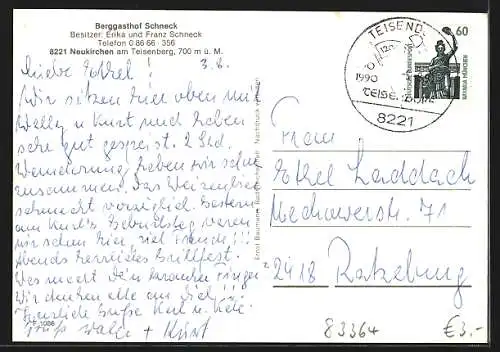 Berggasthof Schneck
Besitzer: Erika und Franz Schneck
Telefon 0 86 66 · 356
8221 Neukirchen am Teisenberg, 700 m ü. M.
Liebe Ethel! 3.8.
Wir sitzen hier oben mit
Welly u Kurt und haben
sehr gut gespeist. 2 Std.
Wanderung haben wir schon
zusammen. Das Weizenbier
schmeckt vorzüglich. Gestern
am Kurt's Geburtstag waren
wir schon hier, viel Freude!!
Abends herrliches Grillfest.
Was macht Dein Finger
Wir denken alle an Dich!!!
Herzliche Grüße Kurt u.
Gruß + Kurt
Ernst Baumann, Bad Reichenhall Nachdruck verboten
TEISEND
1990
8221
60
DEUTSCHE BUNDESPOST
BAVARIA MÜNCHEN
Frau
Ethel Laddach
Mechowerstr. 71
2418 Ratzeburg
83364 €3.-